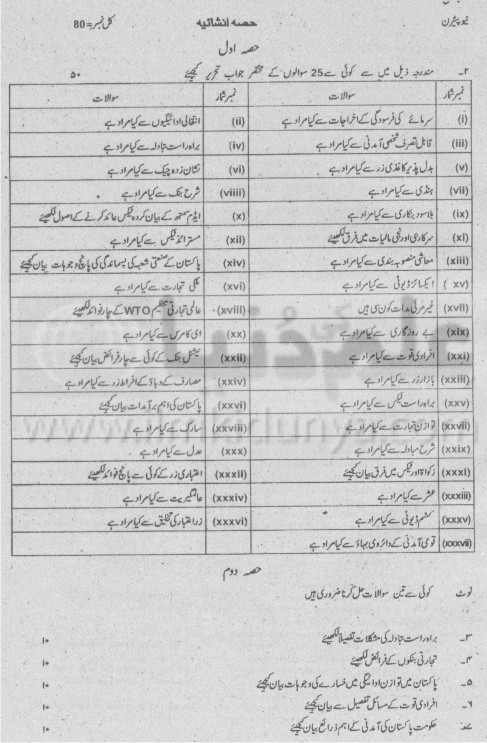 نیو پیٹرن حصہ انشائیہ کل نمبر=80
حصہ اول
۲۔ مندرجہ ذیل میں سے کوئی سے 25 سوالوں کے مختصر جواب تحریر کیجئے ۵۰
نمبر شمار سوالات نمبر شمار سوالات
(i) سرمائے کی فرسودگی کے اخراجات سے کیا مراد ہے (ii) انتقالی ادائیگیوں سے کیا مراد ہے
(iii) قابل تصرف شخصی آمدنی سے کیا مراد ہے (iv) براہ راست تبادلہ سے کیا مراد ہے
(v) بدل پذیر کاغذی زر سے کیا مراد ہے (vi) نشان زدہ چیک سے کیا مراد ہے
(vii) ہنڈی سے کیا مراد ہے (viiii) شرح بنک سے کیا مراد ہے
(ix) بلاسود بنکاری سے کیا مراد ہے (x) ایڈم سمتھ کے بیان کردہ ٹیکس عائد کرنے کے اصول لکھیئے
(xi) سرکاری اور نجی مالیات میں فرق لکھیئے (xii) مستزاد ٹیکس سے کیا مراد ہے
(xiii) معاشی منصوبہ بندی سے کیا مراد ہے (xiv) پاکستان کے صنعتی شعبہ کی پسماندگی کی پانچ وجوہات بیان کیجئے
(xv) ایکسائز ڈیوٹی سے کیا مراد ہے (xvi) ملکی تجارت سے کیا مراد ہے
(xvii) غیر مرئی مدات کون سی ہیں (xviii) عالمی تجارتی تنظیم WTO کے چار فوائد لکھیئے
(xix) بے روزگاری سے کیا مراد ہے (xx) ای کامرس سے کیا مراد ہے
(xxi) افرادی قوت سے کیا مراد ہے (xxii) سنٹرل بنک کے کوئی سے چار فرائض بیان کیجئے
(xxiii) بازار زر سے کیا مراد ہے (xxiv) مصارف کے دباؤ کے افراط زر سے کیا مراد ہے
(xxv) براہ راست ٹیکس سے کیا مراد ہے (xxvi) پاکستان کی اہم برآمدات بیان کیجئے
(xxvii) توازن تجارت سے کیا مراد ہے (xxviii) سارک سے کیا مراد ہے
(xxix) شرح مبادلہ سے کیا مراد ہے (xxx) عدل سے کیا مراد ہے
(xxxi) زکواۃ اور ٹیکس میں فرق بیان کیجئے (xxxii) اعتباری زر کے کوئی سے پانچ فوائد لکھیئے
(xxxiii) عشر سے کیا مراد ہے (xxxiv) عالمگیریت سے کیا مراد ہے
(xxxv) کسٹم ڈیوٹی سے کیا مراد ہے (xxxvi) زر اعتبار کی تخلیق سے کیا مراد ہے
(xxxvii) قومی آمدنی کے دائروی بہاؤ سے کیا مراد ہے
حصہ دوم
نوٹ کوئی سے تین سوالات حل کرنا ضروری ہیں
۳۔ براہ راست تبادلہ کی مشکلات تفصیلاً لکھیئے ۱۰
۴۔ تجارتی بنکوں کے فرائض لکھیئے ۱۰
۵۔ پاکستان میں توازن ادائیگی میں خسارے کی وجوہات بیان کیجئے ۱۰
۶۔ افرادی قوت کے مسائل تفصیل سے بیان کیجئے ۱۰
۷۔ حکومت پاکستان کی آمدنی کے اہم ذرائع بیان کیجئے ۱۰